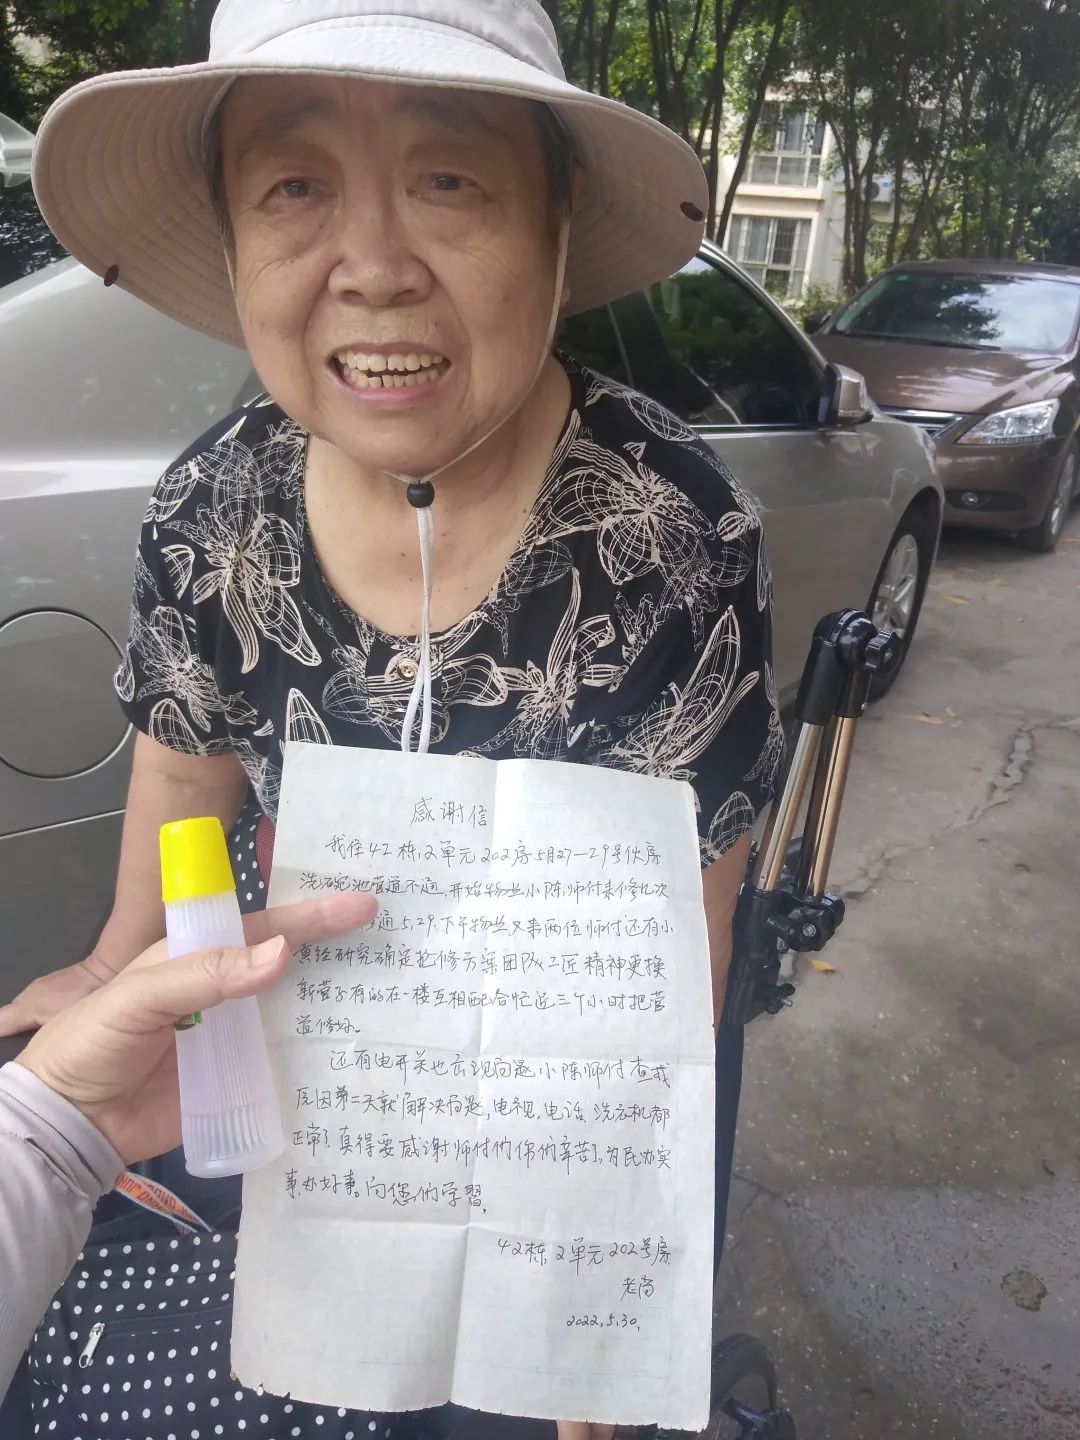 感谢信
我住42栋2单元202房5月27—29号伙房
洗碗池管道不通,开始物业小陈师付来修几次
通5.29.下午物业又来两位师付还有小
经研究确定抢修方案团队工匠精神更换
新管子有的在一楼互相配合忙近三个小时把管
道修好。
还有电开关也出现问题小陈师付查找
因第二天就解决问题,电视,电话,洗衣机都
正常了真得要感谢师付们你们辛苦了,为民办实
事办好事。向您们学習。
42栋2单元202号房
老尚
2022.5.30.